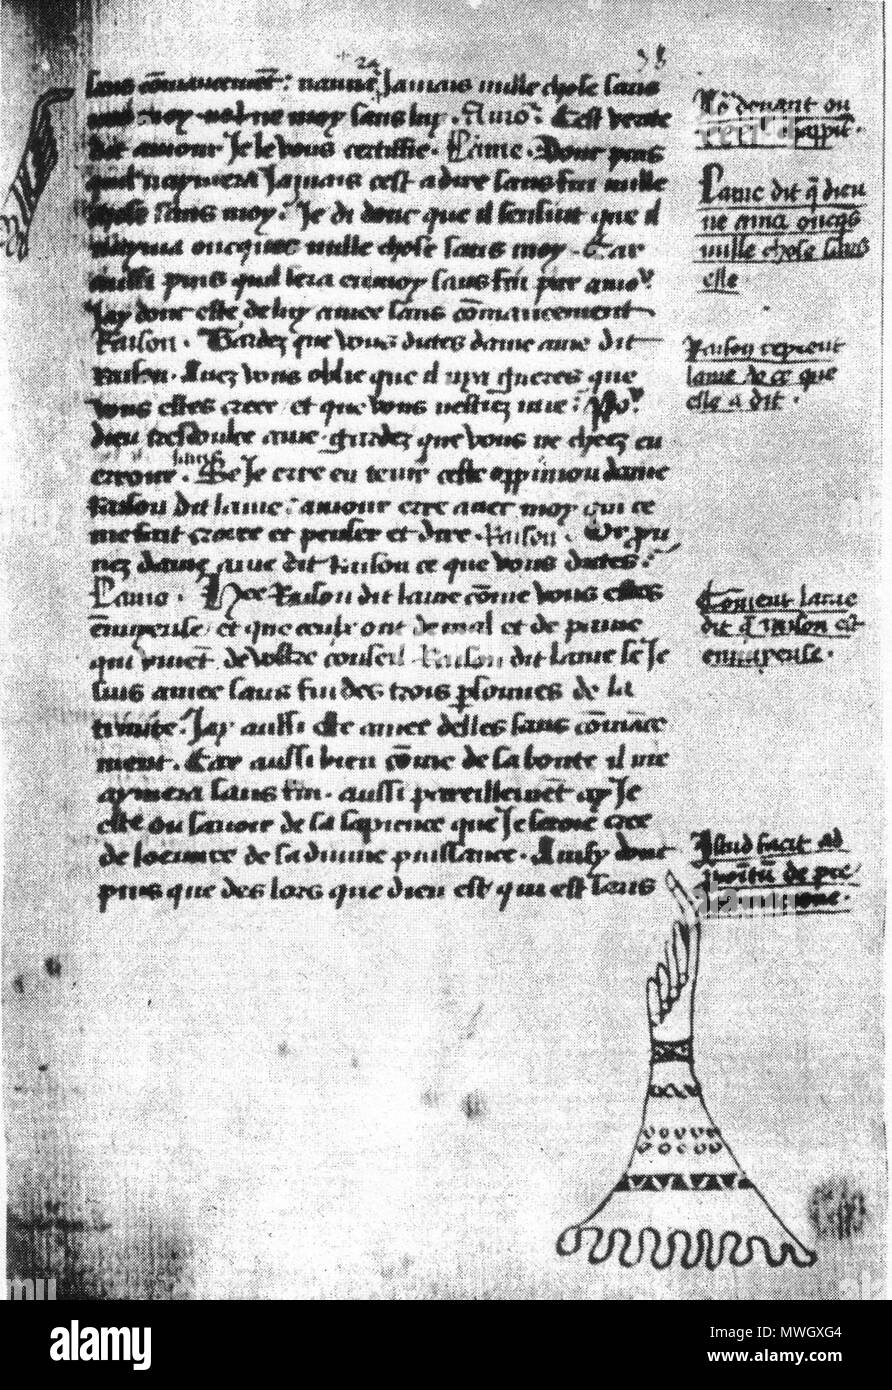 sans cõmancemẽt : nãme Jamais nulle chose sans
moy ne moy sans luy . Amo͛. Cest verite
dit amour Je le vous certiffie . Lame . Donc puis
quil naymera Jamais cest adire sans fin nulle
chose sans moy . Je di donc que il sensuit que il
nayma oncques nulle chose sans moy . Car
aussi puis quil sera en moy sans fin par amo͛.
Jay donc este de luy amee sans cõmancement
Raison . Gardez que vous dictes dame ame dit
raison . Auez vous oblie que il nya gueres que
vous estes creee et que vous nestiez mie : Po͛
dieu tresdoulce ame . gardez que vous ne cheez en
erreur . Se Je erre en tenir ceste oppinion dame
Raison dit lame : amour erre auec moy qui ce
me fait croire et penser et dire . Raison . Or pu
nez dame ame dit Raison ce que vous dictes .
Lame . Hee Raison dit lame cõme vous estes
ennuyeuse et que ceulx ont de mal et de paine
qui viuẽt de vostre conseil . Raison dit lame se Je
suis amee sans fin des trois psonnes de la
trinite . Jay aussi este amee delles sans cõmãce
ment . Car aussi bien cõme de sa bonte il me
aymera sans fin . aussi pareillemẽt ay Je
este ou sauoir de sa sapience que Je seroie creee
de loeuure de sa diuine puissance . Ainsy donc
puis que des lors que dieu est qui est sans
deuant ou
chappit͛.
Lame dit q̃ dieu
ne ama oncqs
nulle chose sans
elle .
Raison reprent
lame de ce que
elle a dit .
Cõment lame
dit q̃ raison est
ennuyeuse .
Istud facit ad
de pre
alamy
Image ID: MWGXG4
www.alamy.com